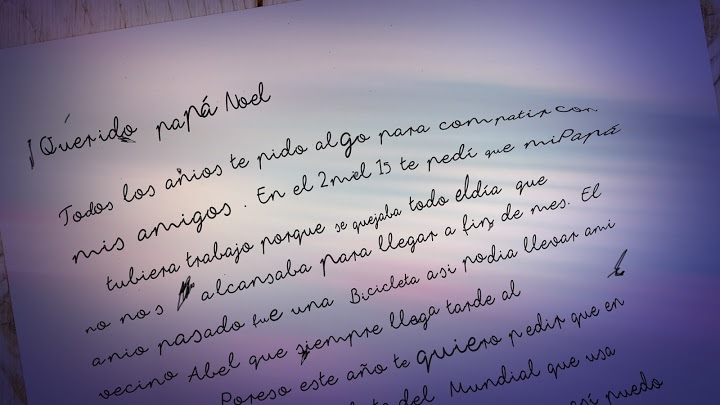 ¡Querido papá Noel
Todos los anios te pido algo para compatir con
mis amigos. En el 2mel 15 te pedí que mi Papá
tubiera trabajo porque se quejaba todo eldía que
no nos alcansaba para llegar a fin de mes. El
anio pasado fue una Bicicleta asi podia llevar ami
vecino Abel que siempre llega tarde al
Poreso este año te quiero pedir que en
del Mundial que usa
así puedo